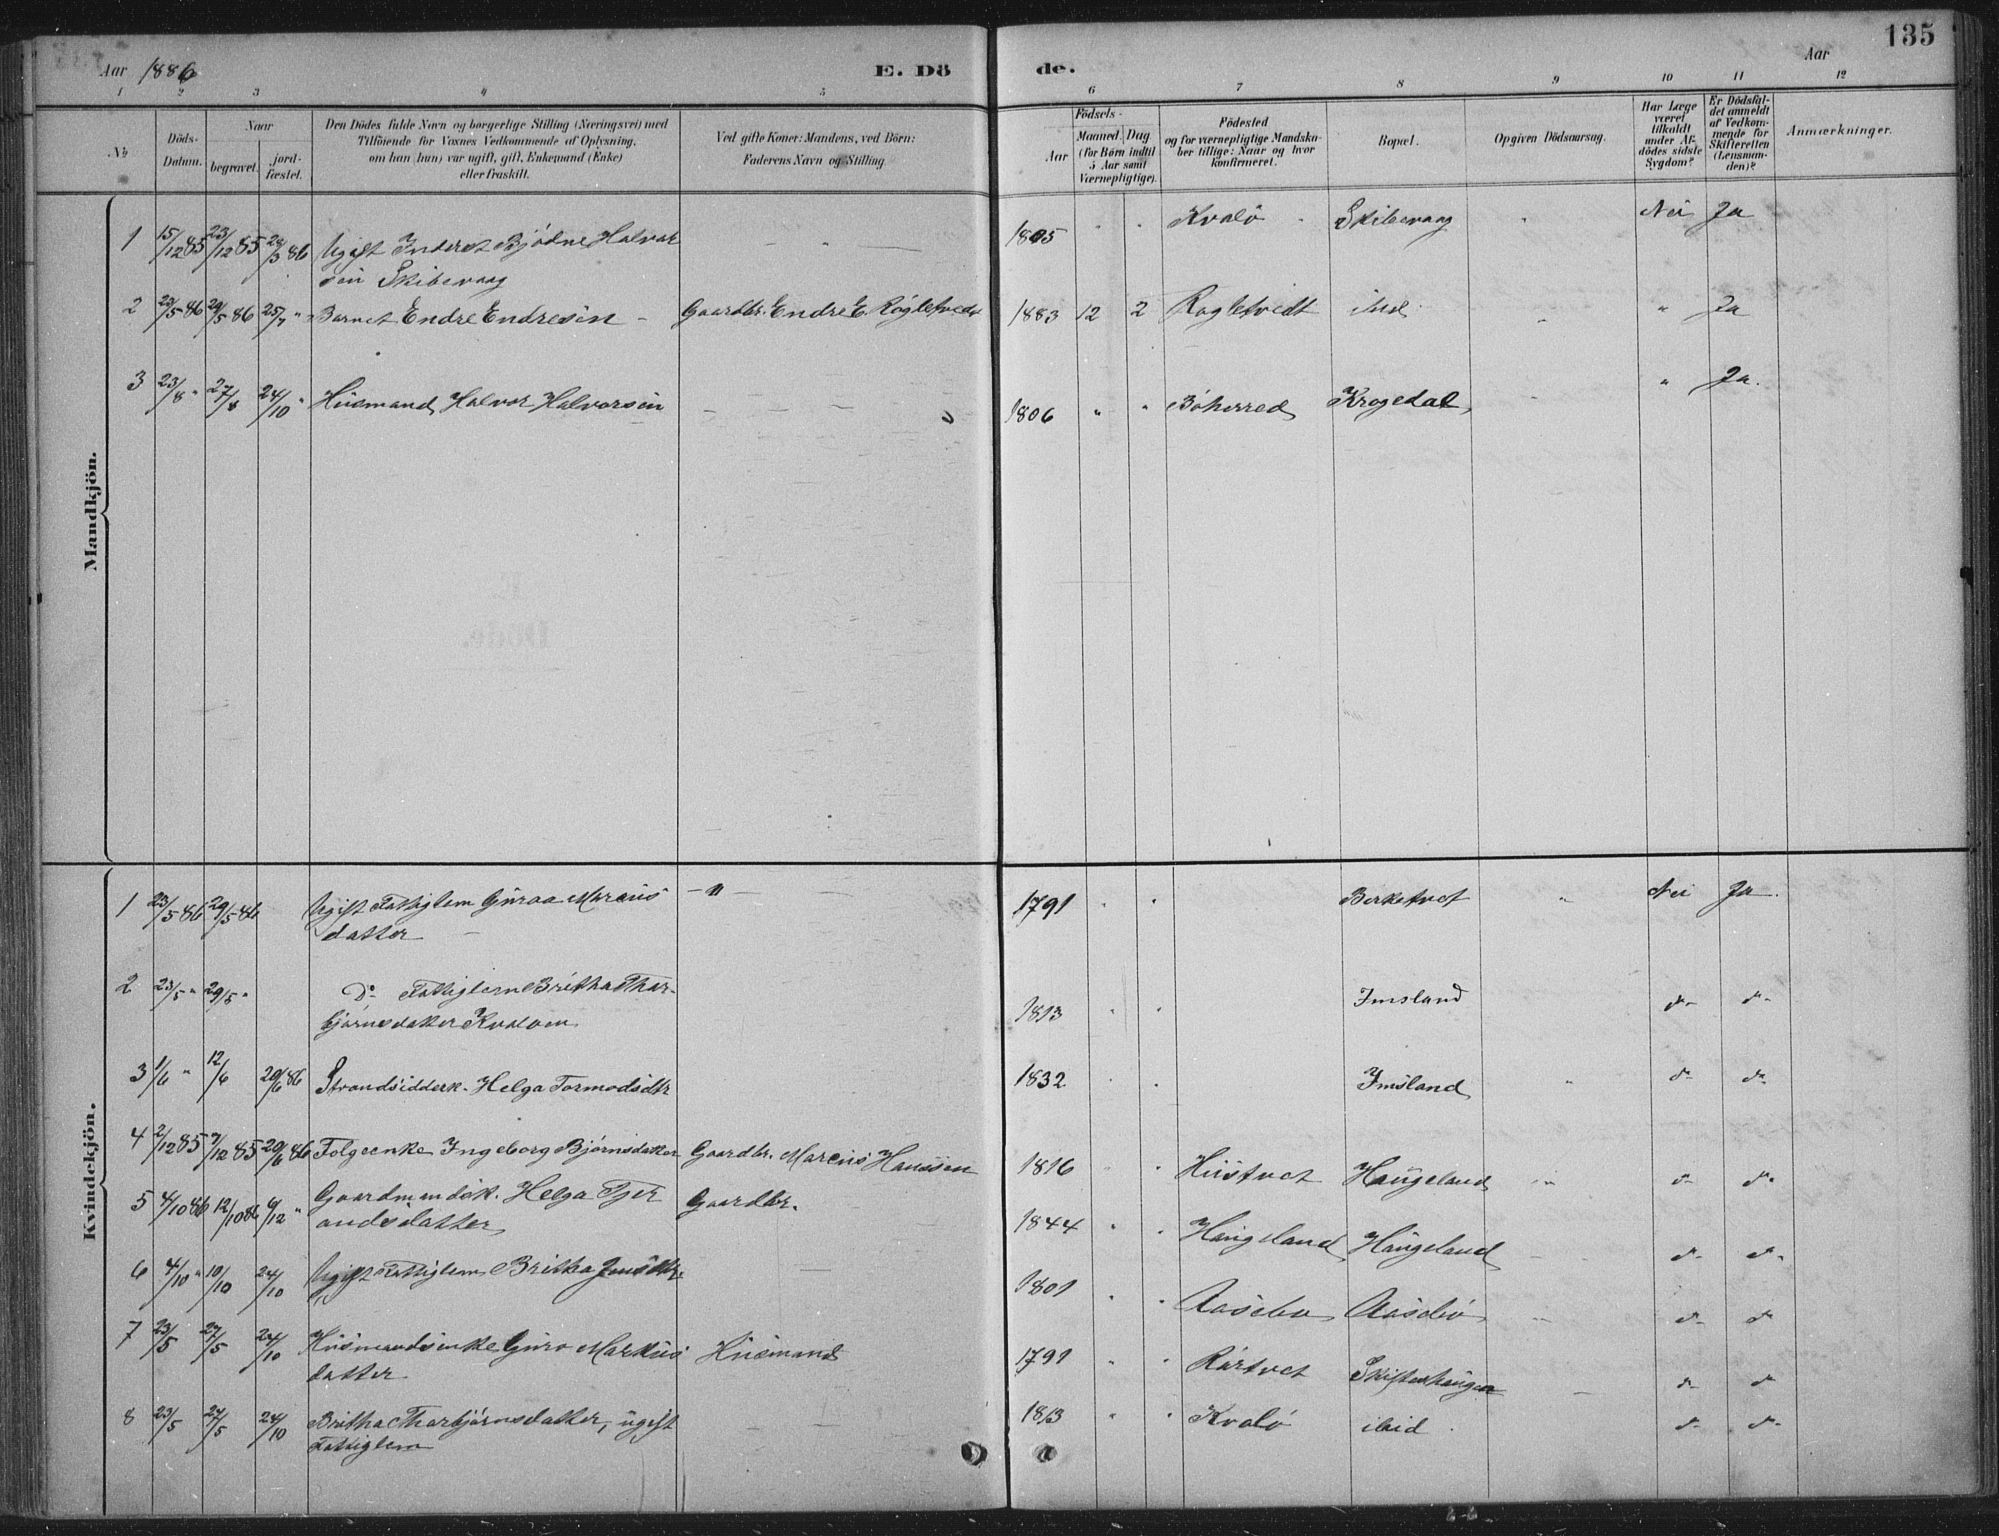 135
Aar 1886 E. Dö de. Aar
1 2 3 4 5 6 7 8 9 10 11 12
No
Döds-Datum.
Naar
begravet. jordfæstet.
Den Dödes fulde Navn og borgerlige Stilling (Næringsvei) med
Tilföiende for Voxnes Vedkommende af Oplysning,
om han (hun) var ugift, gift, Enkemand (Enke)
eller fraskilt.
Ved gifte Koner: Mandens, ved Börn:
Faderens Navn og Stilling.
Födsels-
Aar Maaned Dag
(for Börn indtil
5 Aar samt
Værnepligtige).
Födested
og for værnepligtige Mandskaber
tillige: Naar og hvor
konfirmeret.
Bopæl.
Opgiven Dödsaarsag.
Har Læge
været
tilkaldt
under Afdödes
sidste
Sygdom?
Er Dödsfaldet
anmeldt
af Vedkommende
for
Skifteretten
(Lensmanden)?
Anmærkninger.
Mandkjön.
1 15/12 85 23/12 85 28/3 86 Ugift Inderst Bjødne Halvor 1805 " " Kvalö Skibevaag " Nei Ja
sen Skibevaag
2 22/5 86 29/5 86 25/7 " Barnet Endre Endresen - Gaardbr. Endre E. Røgletvedt 1883 12 2 Rogletvedt ibid " " Ja
3 23/8 " 27/8 24/10 " Husmand Halvor Halvorsen 1806 " " Böherred Krogedal " Ja.
Kvindekjön.
1 23/5 86 29/5 86 Ugift Fattiglem Guroa Marcus - " - 1791 " " Berketvet " Nei Ja
datter
2 23/5 " 29/5 " Do Fattiglem Britha Thor- 1813 " " Imsland d- d-
bjørnsdatter Kvaloen
3 1/6 " 12/6 20/6 86 Strandsidderk. Helga Tormodsdtr 1832 " " Imsland " d- d-
4 2/12 85 7/12 85 20/6 86 Folgeenke Ingeborg Bjørnsdatter Gaardbr. Marcus Hanssen 1816 " " Hustvet Haugeland d- d-
5 4/10 86 12/10 86 6/12 " Gaardmandsk. Helga Tjer Gaardbr. 1844 " " Haugeland Haugeland d- d-
andsdatter
6 4/10 " 10/10 24/10 Ugift Fattiglem Britha Jensdtr. 1801 " " Aasebø Aasebø d- d-
7 23/5 27/5 24/10 Husmandsenke Guro Markus Husmand 1791 " " Rørtvet Skiftenhaugen d- d-
datter
8 23/5 27/5 24/10 Britha Thorbjørnsdatter, ugift 1813 " " Kvalö ibid d- d-
Fattiglem